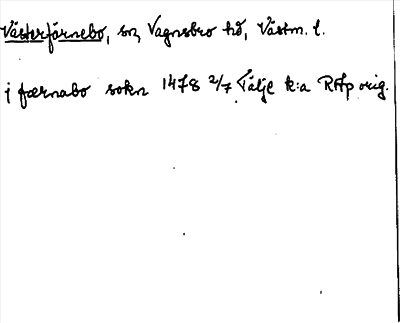 Västerfärnebo, sn, Vagnsbro hd, Västm. l.
j færnabo sokn 1478 2/7 Tälje k:a RAp orig.